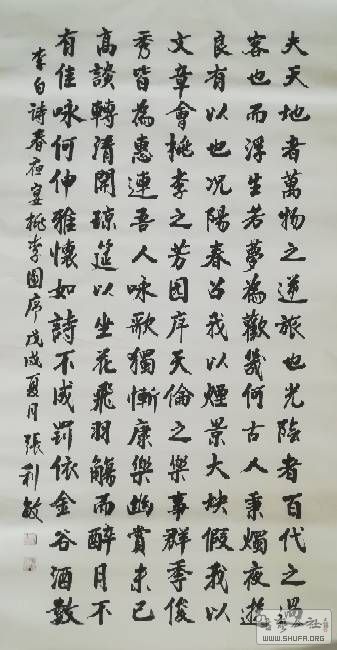 夫天地者萬物之逆旅也光陰者百代之過
客也而浮生若夢為歡幾何古人秉燭夜遊
良有以也況陽春召我以煙景大塊假我以
文章會桃李之芳園序天倫之樂事群季俊
秀皆為惠連吾人咏歌獨慚康樂幽賞未已
高談轉清開瓊筵以坐花飛羽觴而醉月不
有佳咏何伸雅懷如詩不成罰依金谷酒數
李白詩春夜宴桃李園序戊戌夏月張利敏
WWW.SHUFA.ORG